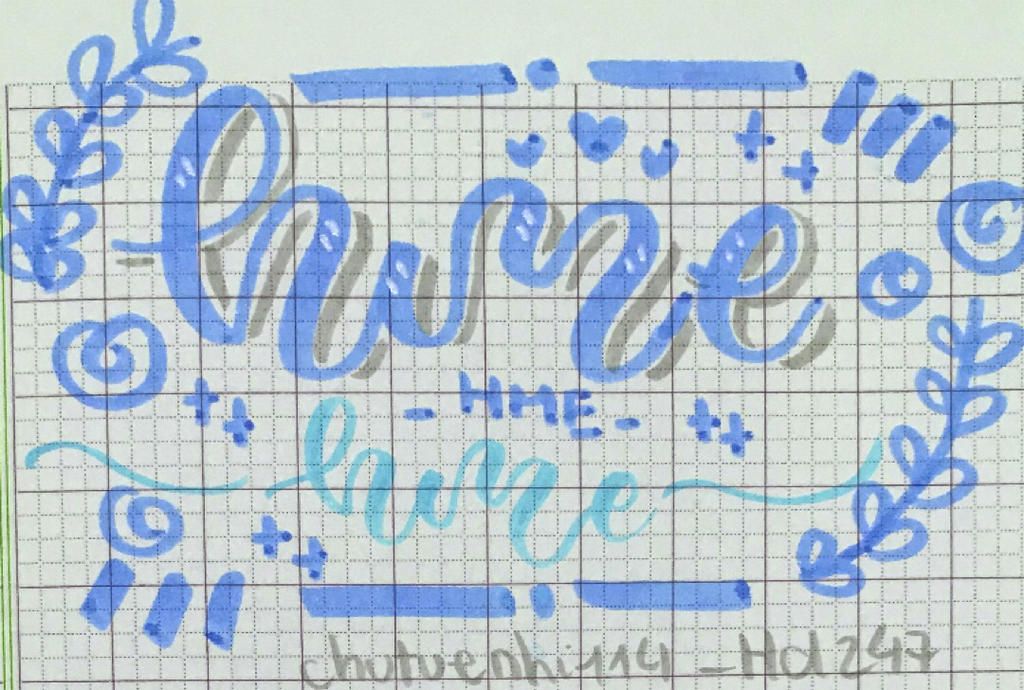 hme
- HME -
hme
chutuenhi114 _Hd247